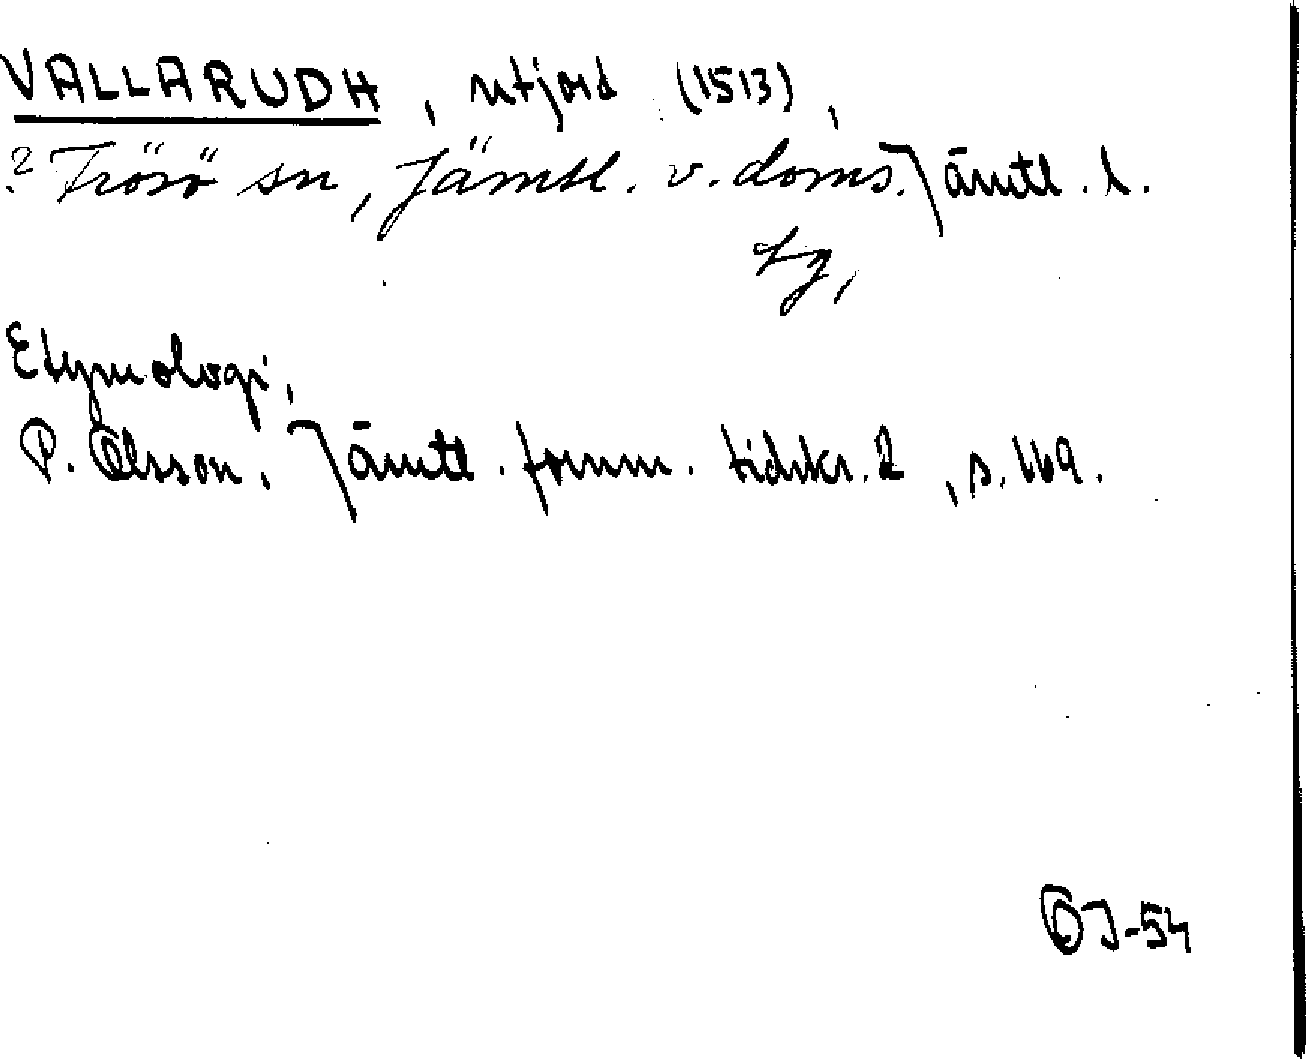 VALLARUDH, utjord (1513),
? Frösö sn, Jämtl. v. doms. Jämtl. l.
tg,
Etymologi,
P. Olsson, Jämtl. fornm. tidskr. 2, s. 169.
OJ-54